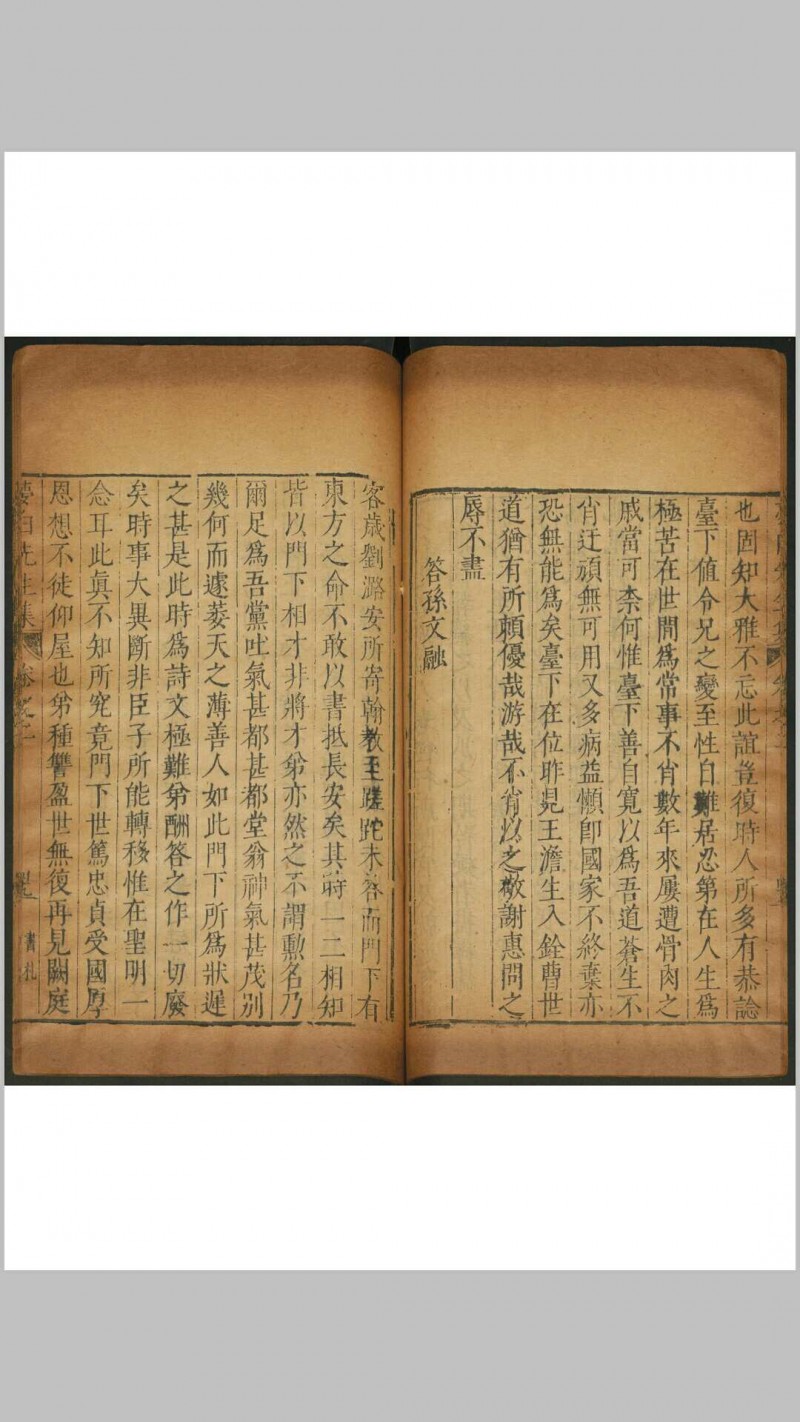 也固知大雅不忘此誼豈復時人所多有恭諗
臺下值令兄之變至性自難居忍第在人生爲
極苦在世間爲常事不肖數年來屢遭骨肉之
戚當可柰何惟臺下善自寛以爲吾道蒼生不
肖迂頑無可用又多病益懶卽國家不終棄亦
恐無能爲矣臺下在位昨見王澹生入銓曹世
道猶有所頼優哉游哉不肖以之敬謝惠問之
辱不盡
答孫文融
客歳劉潞安所寄翰教至蹉跎未答而門下有
東方之命不敢以書抵長安矣其時一二相知
皆以門下相才非將才弟亦然之不謂勲名乃
爾足爲吾黨吐氣甚都甚都堂翁神氣甚茂别
幾何而遽萎天之薄善人如此門下所爲狀遲
之甚是此時爲詩文極難弟酬答之作一切廢
矣時事大異斷非臣子所能轉移惟在聖明一
念耳此眞不知所究竟門下世篤忠貞受國厚
恩想不徒仰屋也弟種讐盈世無復再見闕庭
夢白先生集 卷之二 書札